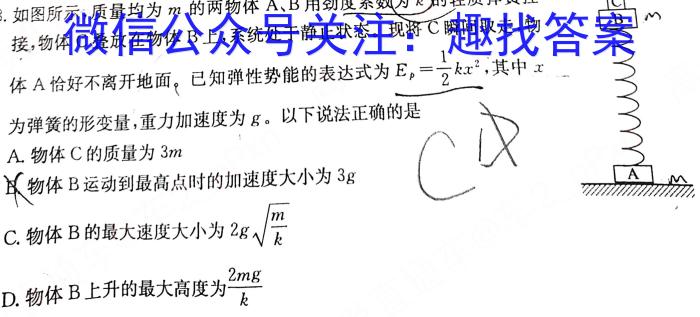 .如图所示,质量均为 m 的两物体 A、B 用劲度系数为 k 的轻质弹簧
微信公众号关注:趣找答案
接,物体 叠放在物体 B 上,系统处于静止状态。现将 C 瞬间取走,物
体 A 恰好不离开地面。已知弹性势能的表达式为 Eₚ=1/2 kx²,其中 x
为弹簧的形变量,重力加速度为 g。以下说法正确的是
A. 物体 C 的质量为 3m
B. 物体 B 运动到最高点时的加速度大小为 3g
C. 物体 B 的最大速度大小为 2g√(m/k)
D. 物体 B 上升的最大高度为 2mg/k
C
B
m
A
m
C